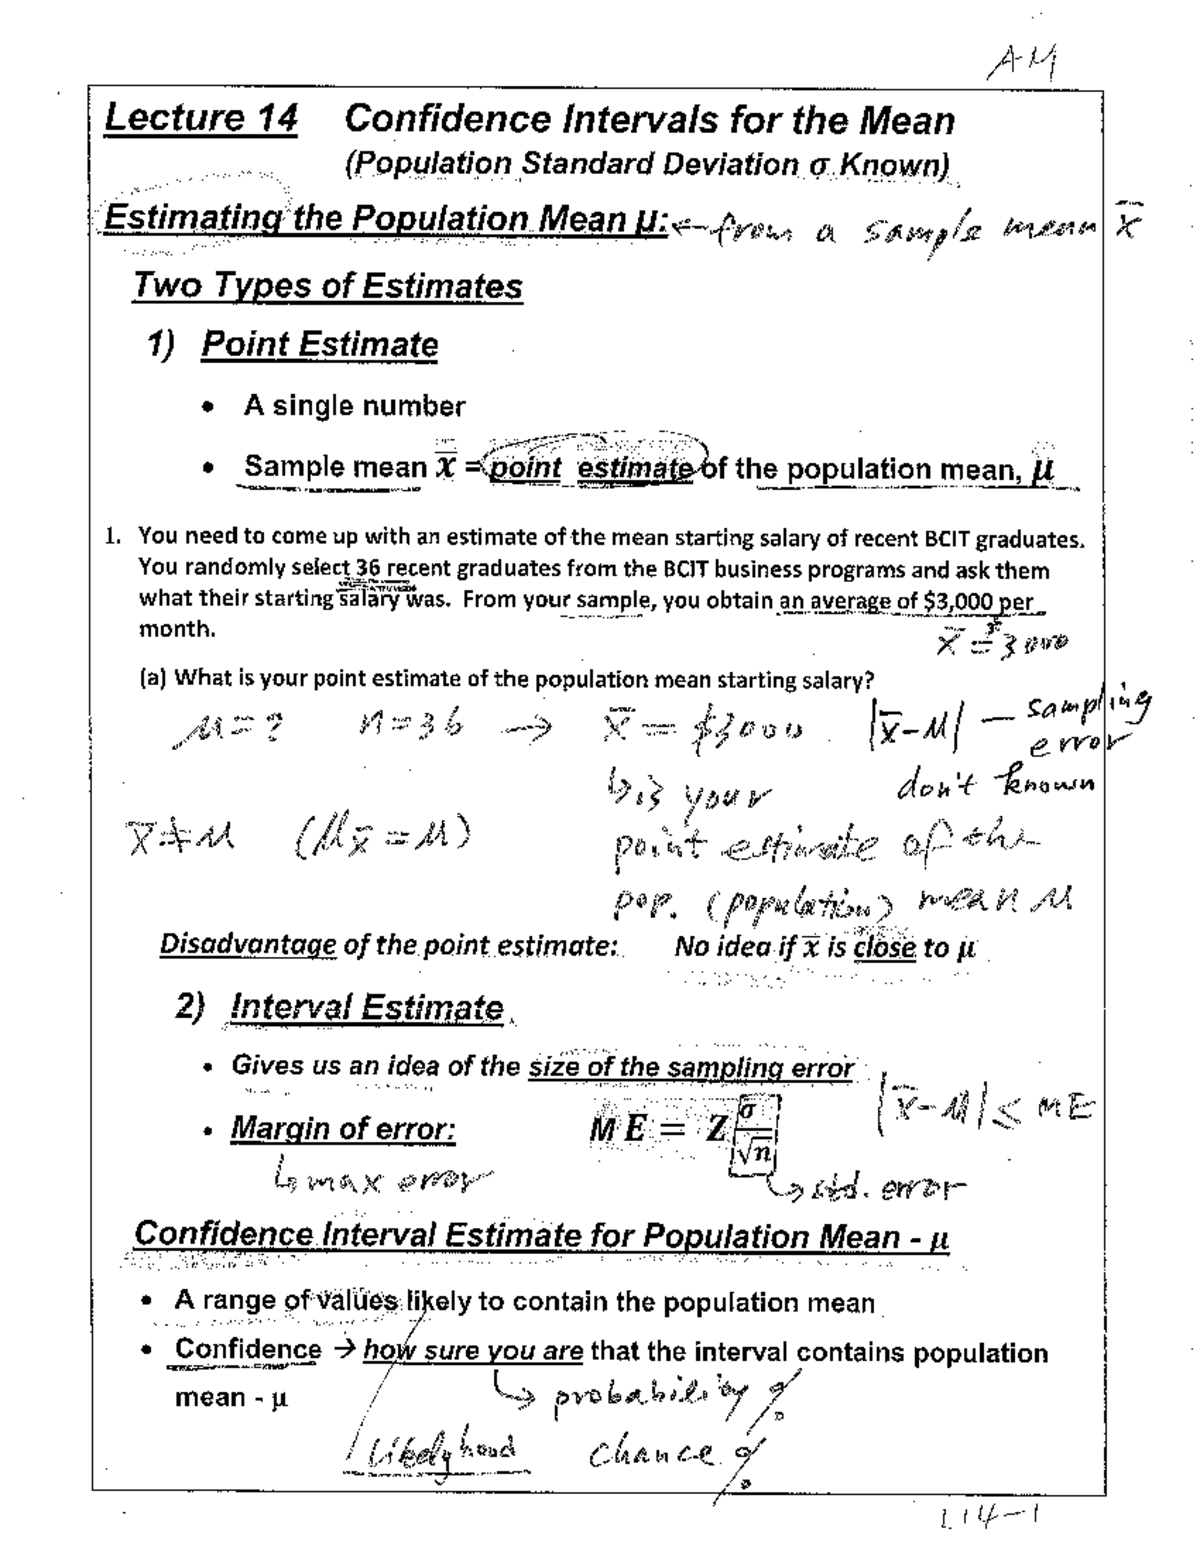 AM
Lecture 14 Confidence Intervals for the Mean
(Population Standard Deviation σ Known)
Estimating the Population Mean μ: ← from a sample mean x̄
Two Types of Estimates
1) Point Estimate
• A single number
• Sample mean x̄ = point estimate of the population mean, μ
1. You need to come up with an estimate of the mean starting salary of recent BCIT graduates.
You randomly select 36 recent graduates from the BCIT business programs and ask them
what their starting salary was. From your sample, you obtain an average of $3,000 per
month.
x̄ = 3000
(a) What is your point estimate of the population mean starting salary?
μ = ? n = 36 → x̄ = $3000 |x̄ - μ| — sampling
error
↳ is your don't known
x̄ ≠ μ (μx̄ = μ) point estimate of the
pop. (population) mean μ
Disadvantage of the point estimate: No idea if x̄ is close to μ
2) Interval Estimate
• Gives us an idea of the size of the sampling error
• Margin of error: ME = Z σ/√n |x̄ - μ| ≤ ME
↳ max error ↳ std. error
Confidence Interval Estimate for Population Mean - μ
• A range of values likely to contain the population mean
• Confidence → how sure you are that the interval contains population
mean - μ
↳ probability %
Likelyhood chance %
L14-1